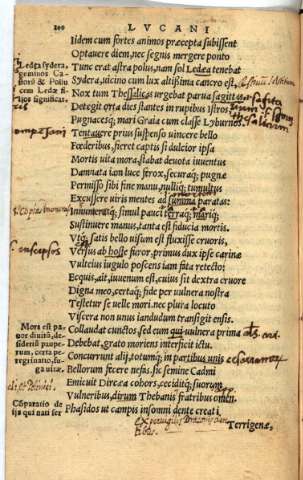 200 LVCANI
Iidem cum fortes animos præcepta subissent
Optauere diem, nec segnis mergere ponto
Ledæa sydera,
Tunc erat astra polus, nam sol Ledæa tenebat
geminos Cas
toris & Pollu
Sydera, uicino cum lux altissima cancro est,
cem Ledæ fi
lios significat.
Nox tum Thessalicas urgebat parua sagittas
Detegit orta dies stantes in rupibus istros
Pugnacesq; mari Graia cum classe Lyburnos.
Tentauere prius suspenso uincere bello
Fœderibus, fieret captis si dulcior ipsa
Mortis uita mora, stabat deuota iuuentus
Damnata iam luce ferox, securaq; pugnæ
Permisso sibi fine manu, nulliq; tumultus
Excussere uiris mentes ad summa paratas:
Innumerasq; simul pauci terraq; mariq;
Sustinuere manus, tanta est fiducia mortis.
Vtq; satis bello uisum est fluxisse cruoris,
Versus ab hoste furor, primus dux ipse carinæ
Vulteius iugulo poscens iam fata retecto:
Ecquis, ait, iuuenum est, cuius sit dextra cruore
Digna meo, certaq; fide per uulnera nostra
Testetur se uelle mori: nec plura locuto
Viscera non unus iandudum transigit ensis.
Mors est pa
Collaudat cunctos, sed eum qui uulnera prima
uor diuinū, de
siderijs pauperum, certa peregrinatio, fuga uitæ.
Debebat, grato moriens interficit ictu.
Concurrunt alij, totumq; in partibus unis
Bellorum fecere nefas, sic semine Cadmi
Emicuit Dircæa cohors, ceciditq; suorum
Cōparatio de
Vulneribus, dirum Thebanis fratribus omen.
ijs qui nati ser
Phasidos ut campis insomni dente creati
Terrigenæ,